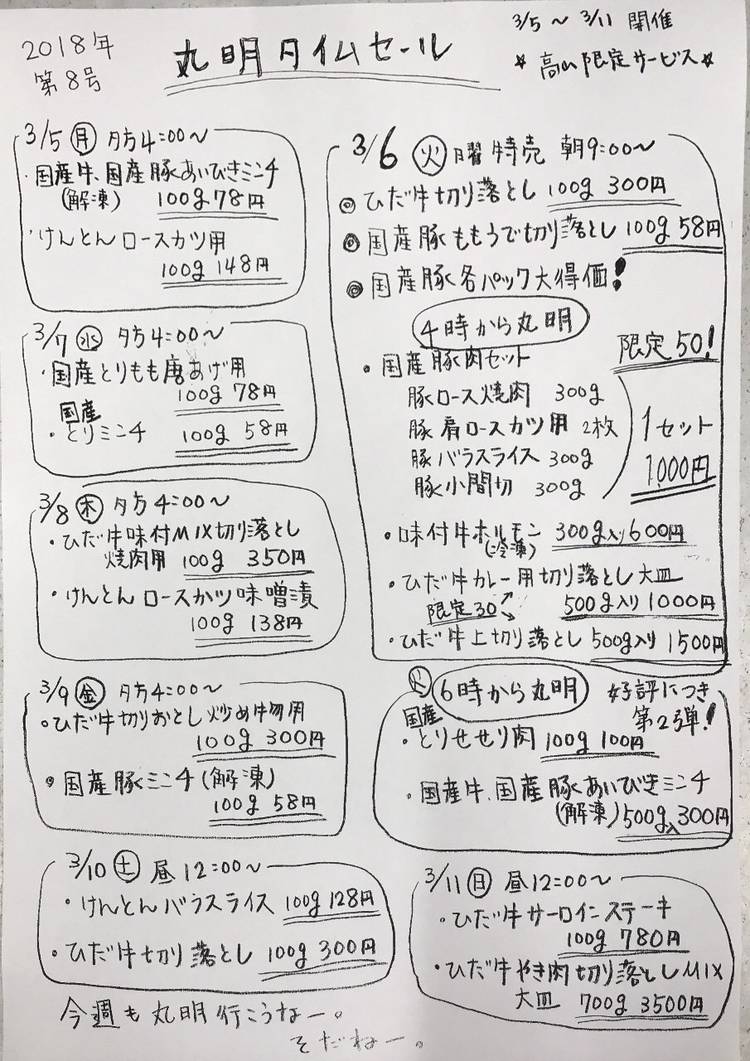 2018年
第8号
丸明タイムセール
3/5～3/11 開催
★高山限定サービス★
3/5(月)夕方4:00～
・国産牛、国産豚あいびきミンチ
(解凍) 100g 78円
・けんとんロースカツ用
100g 148円
3/7(水)夕方4:00～
・国産とりもも唐あげ用
100g 78円
国産
・とりミンチ 100g 58円
3/8(木)夕方4:00～
・ひだ牛味付MIX切り落とし
焼肉用 100g 350円
・けんとんロースカツ味噌漬
100g 138円
3/9(金)夕方4:00～
・ひだ牛切りおとし炒め物用
100g 300円
・国産豚ミンチ(解凍)
100g 58円
3/10(土)昼12:00～
・けんとんバラスライス 100g 128円
・ひだ牛切り落とし 100g 300円
3/6(火)曜特売 朝9:00～
◎ひだ牛切り落とし 100g 300円
◎国産豚ももうで切り落とし 100g 58円
◎国産豚各パック大得価!
4時から丸明
・国産豚肉セット 限定50!
豚ロース焼肉 300g
豚肩ロースカツ用 2枚
豚バラスライス 300g
豚小間切 300g
1セット
1000円
・味付牛ホルモン 300g入り600円
(冷凍)
・ひだ牛カレー用切り落とし大皿
限定30 500g入り1000円
・ひだ牛上切り落とし 500g入り1500円
(火)6時から丸明 好評につき
第2弾!
国産
・とりせせり肉 100g 100円
・国産牛、国産豚あいびきミンチ
(解凍)500g入300円
3/11(日)昼12:00～
・ひだ牛サーロインステーキ
100g 780円
・ひだ牛やき肉切り落としMIX
大皿 700g 3500円
今週も丸明行こうなー。
そだねー。